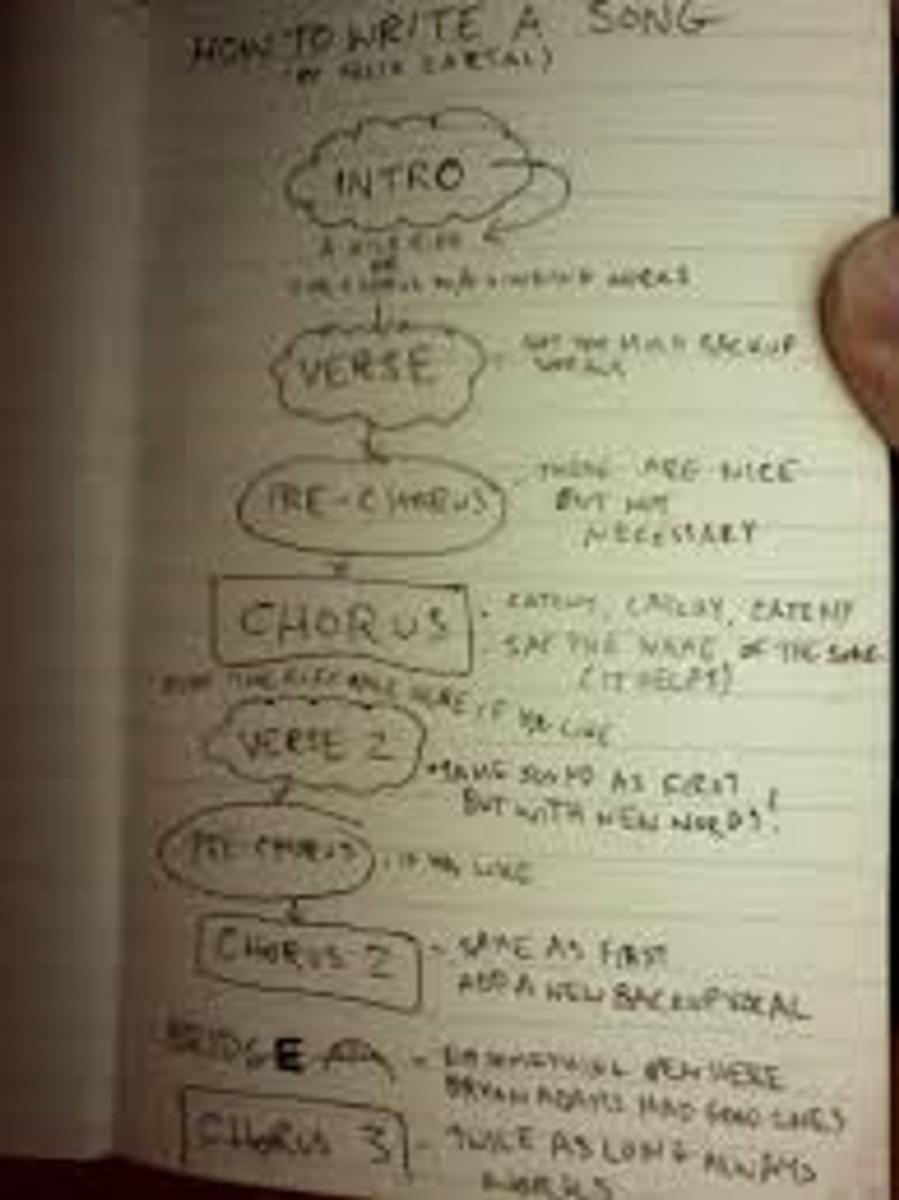 HOW TO WRITE A SONG
(BY FELIX CARTAL)
INTRO
OR
WORKS
VERSE
- NOT TOO MUCH BACKUP
PRE-CHORUS
- THESE ARE NICE
BUT NOT
NECESSARY
CHORUS
- CATCHY, CATCHY, CATCHY
- SAY THE NAME OF THE SONG
(IT HELPS)
HERE IF YOU LIKE
VERSE 2
• SAME SOUND AS FIRST
BUT WITH NEW WORDS!
PRE-CHORUS
- IF YOU LIKE
CHORUS 2
- SAME AS FIRST
ADD A NEW BACKUP VOCAL
BRIDGE
- DO SOMETHING NEW HERE
BRYAN ADAMS HAD GOOD ONES
CHORUS 3
- TWICE AS LONG ALWAYS
WORKS